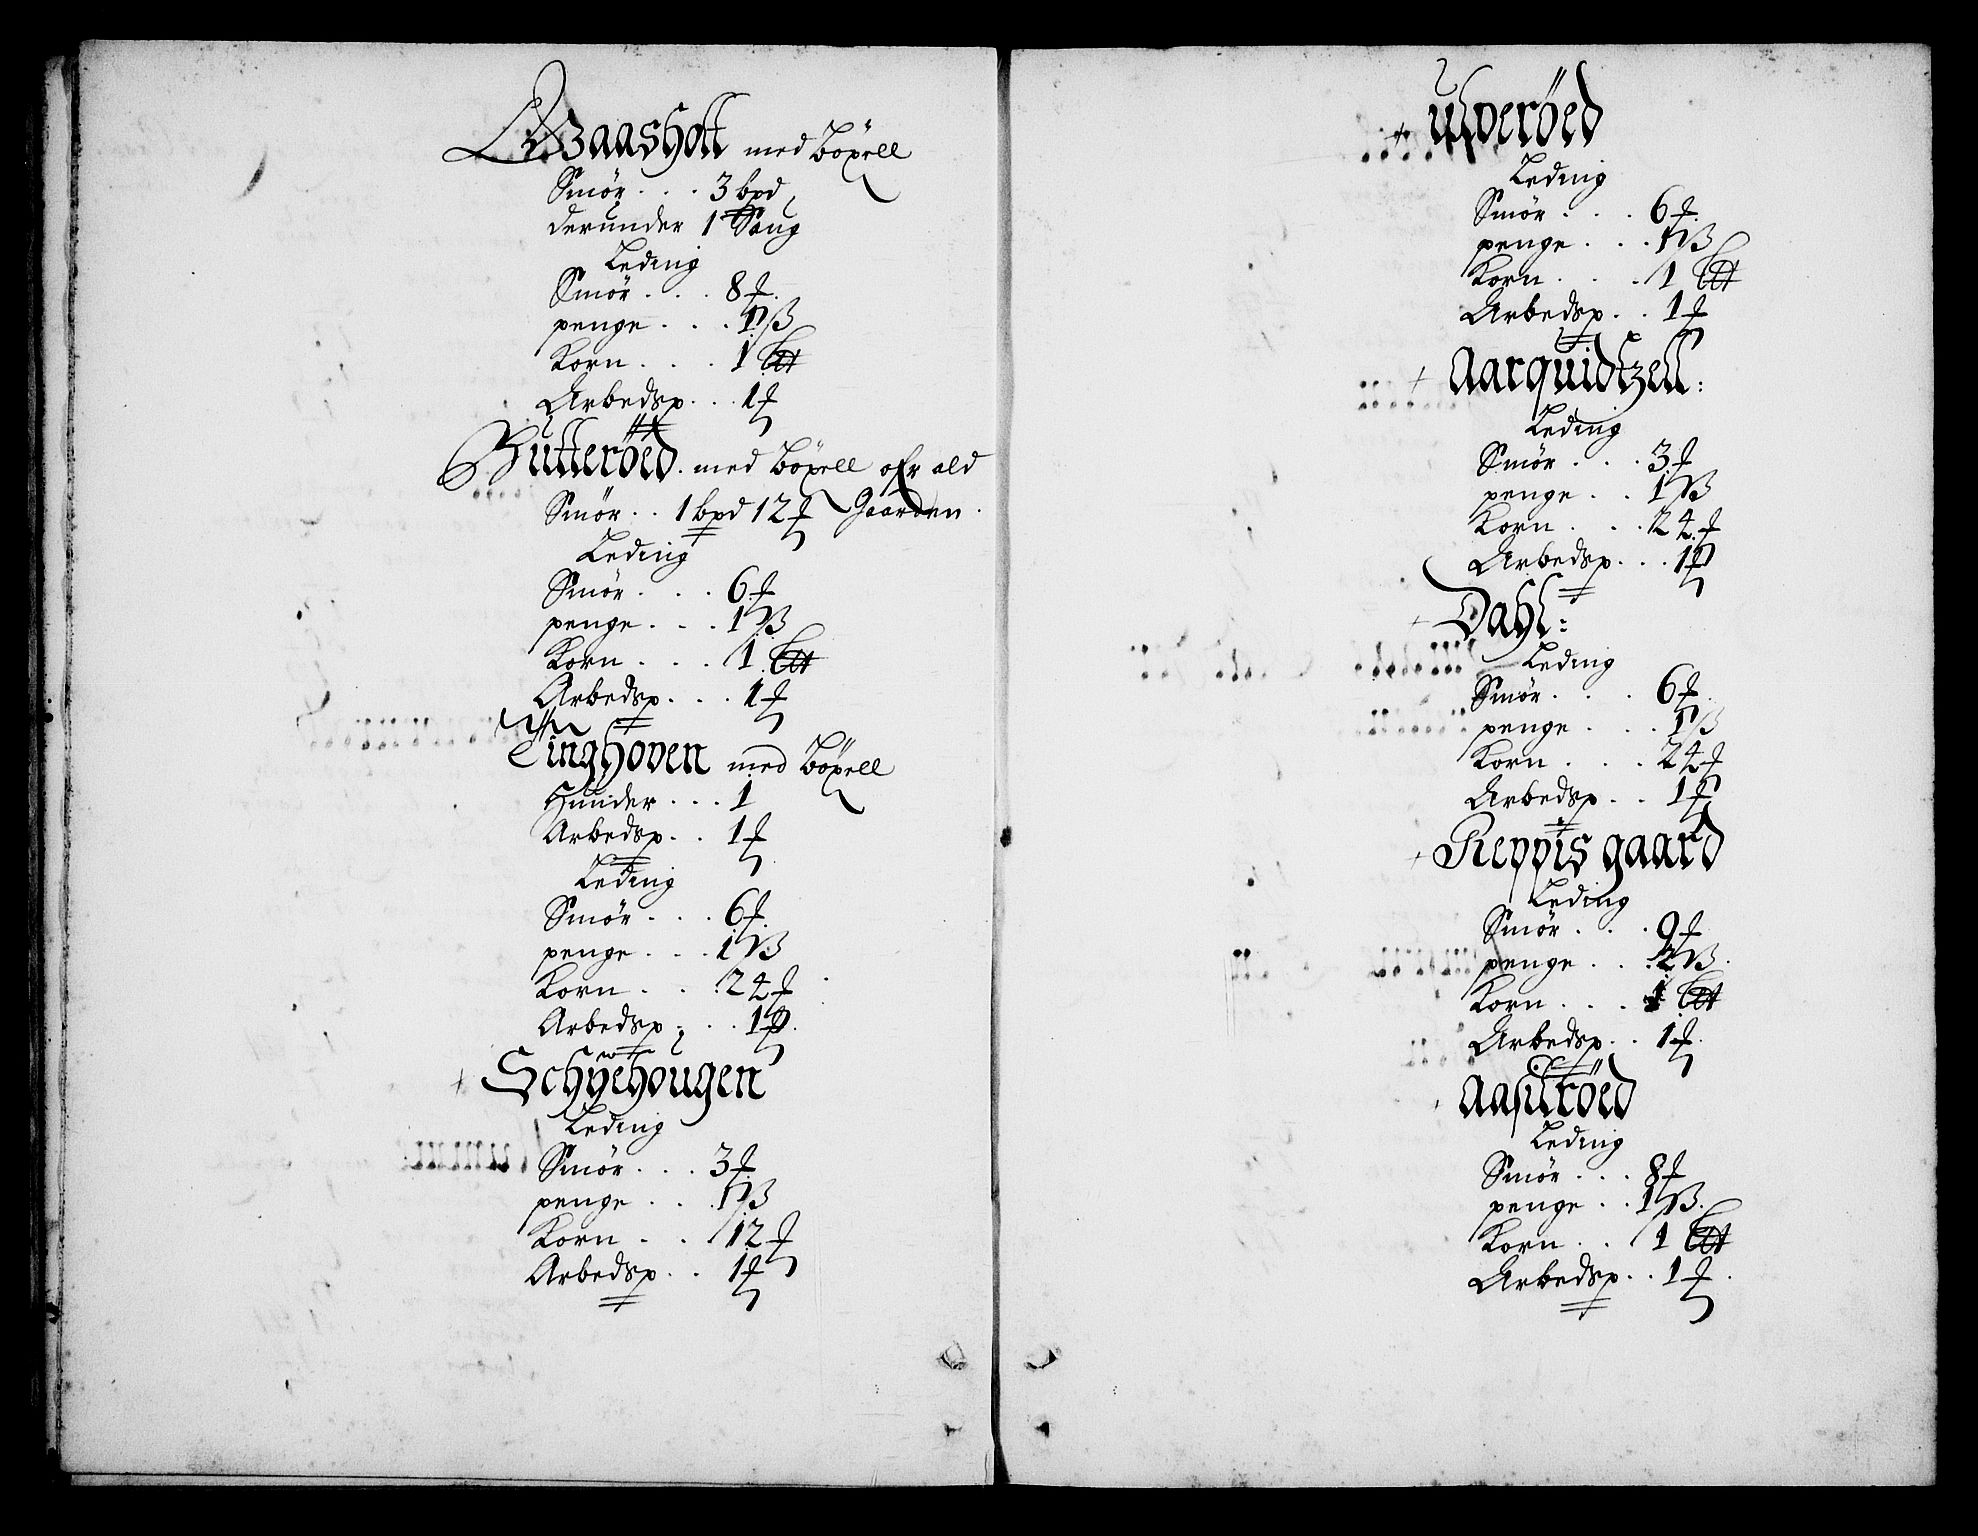 Waasholt med Böxell
Smör . . . 3 bpd
derunder 1 Saug
Leding
Smör . . . 8 ℔
penge . . . 1 ß
Korn . . . 1 Ett
Arbedsp . . . 1 ℔
Butteröed . med Böxell ofr ald
Smör . . 1 bpd 12 ℔ Gaarden .
Leding
Smör . . . 6 ℔
penge . . . 1 ß
Korn . . . 1 Ett
Arbedsp . . . 1 ℔
Tinghoven med Böxell
Hunder . . . 1
Arbedsp . . 1 ℔
Leding
Smör . . . 6 ℔
penge . . . 1 ß
Korn . . . 24 ℔
Arbedsp . . . 1 ℔
+ Schÿehougen
Leding
Smör . . . 3 ℔
penge . . . 1 ß
Korn . . . 12 ℔
Arbedsp . . 1 ℔
+ Ulveröed
Leding
Smör . . . 6 ℔
penge . . . 1 ß
Korn . . . 1 Ett
Arbedsp . . 1 ℔
+ Aarquidtzell :
Leding
Smör . . . 3 ℔
penge . . 1 ß
Korn . . . 24 ℔
Arbedsp . . . 1 ℔
+ Dahl :
Leding
Smör . . . 6 ℔
penge . . . 1 ß
Korn . . . 24 ℔
Arbedsp . . 1 ℔
+ Reppis gaard
Leding
Smör . . . 9 ℔
penge . . . 2 ß
Korn . . . 1 Ett
Arbedsp . . 1 ℔
+ Aaslröed
Leding
Smör . . . 8 ℔
penge . . 1 ß
Korn . . 1 Ett
Arbedsp . . 1 ℔